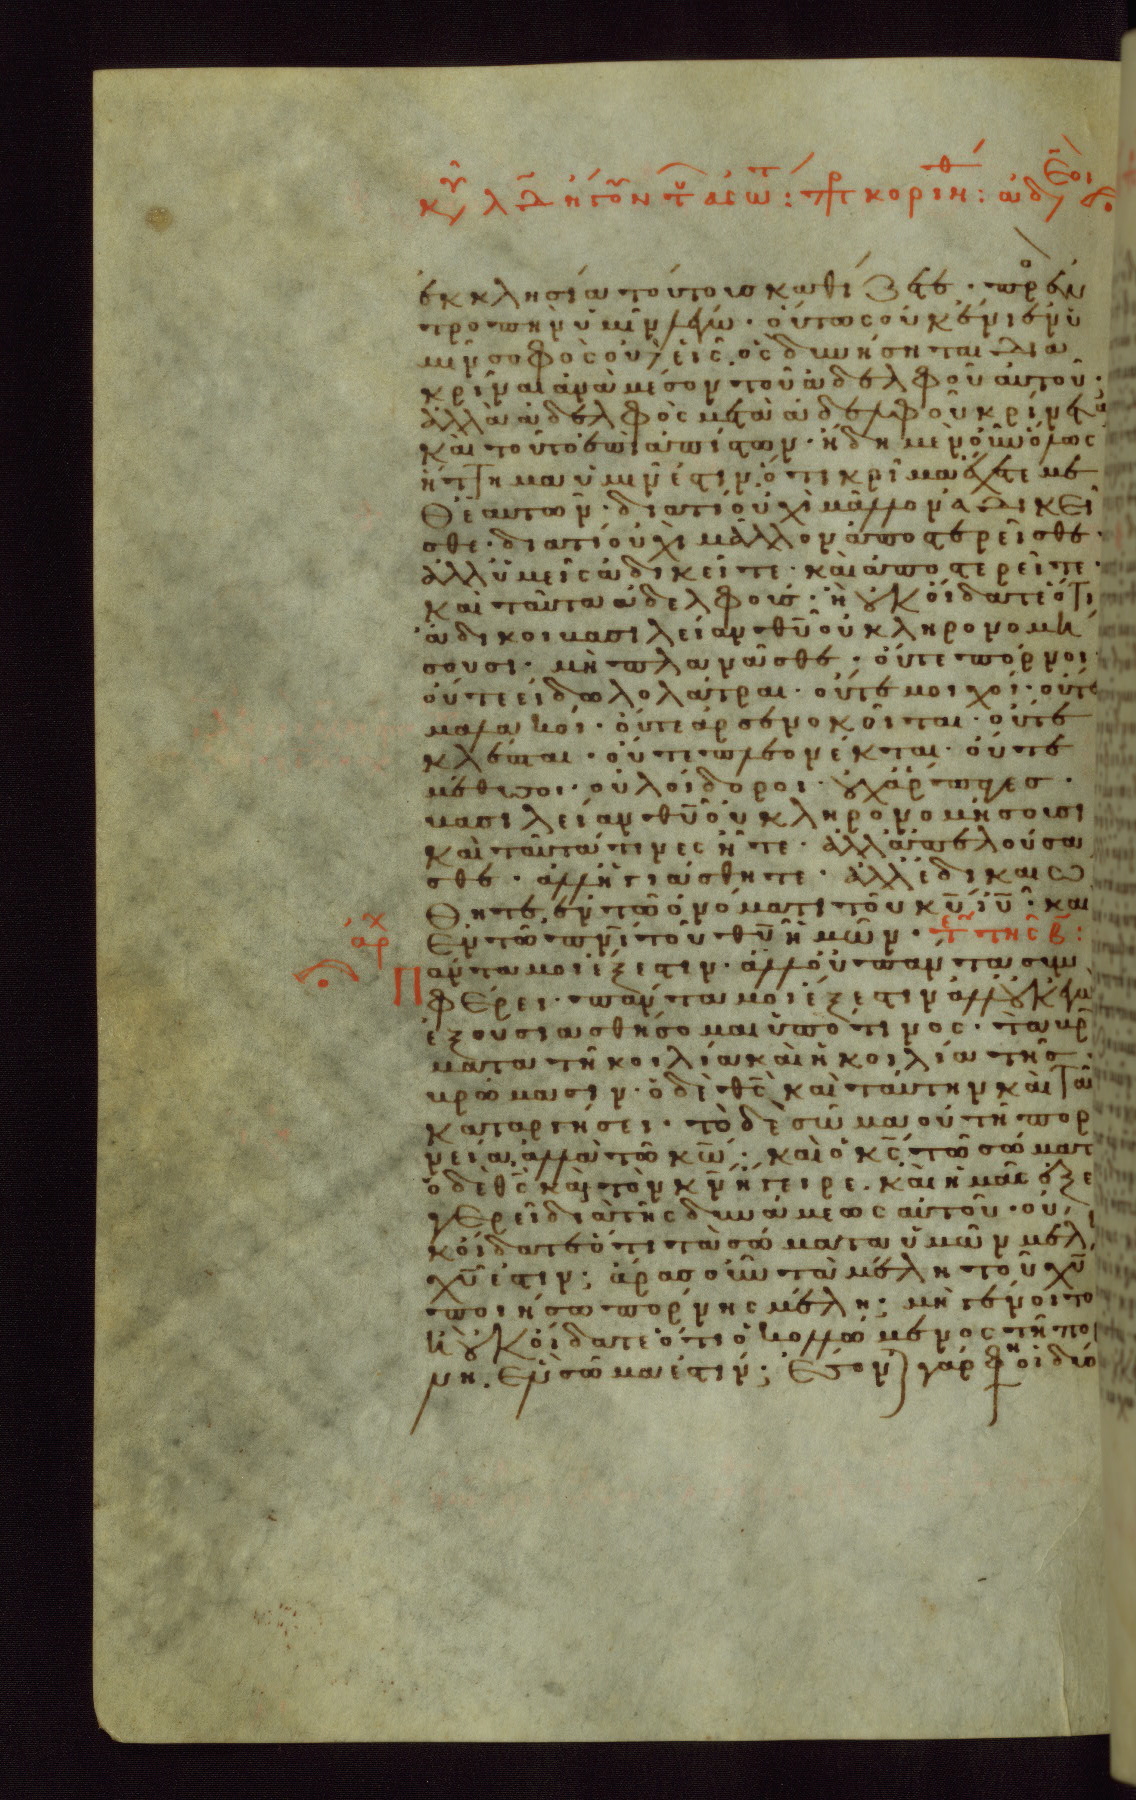 ἐκκλησία τούτους καθίζετε· πρὸς ἐν
τροπὴν ὑμῖν λέγω· οὕτως οὐκ ἔνι ἐν ὑ
μῖν σοφὸς οὐδεὶς ὃς δυνήσηται δια
κρῖναι ἀνὰ μέσον τοῦ ἀδελφοῦ αὐτοῦ·
ἀλλὰ ἀδελφὸς μετὰ ἀδελφοῦ κρίνεται
καὶ τοῦτο ἐπὶ ἀπίστων· ἤδη μὲν οὖν ὅλως
ἥττημα ὑμῖν ἐστιν, ὅτι κρίματα ἔχετε με
θ' ἑαυτῶν· διατί οὐχὶ μᾶλλον ἀδικεῖ
σθε· διατί οὐχὶ μᾶλλον ἀποστερεῖσθε·
ἀλλ' ὑμεῖς ἀδικεῖτε· καὶ ἀποστερεῖτε·
καὶ ταῦτα ἀδελφούς· ἢ οὐκ οἴδατε ὅτι
ἄδικοι βασιλείαν θ̅υ̅ οὐ κληρονομή
σουσι· μὴ πλανᾶσθε· οὔτε πόρνοι
οὔτε εἰδωλολάτραι· οὔτε μοιχοί· οὔτε
μαλακοί· οὔτε ἀρσενοκοῖται· οὔτε
κλέπται· οὔτε πλεονέκται· οὔτε
μέθυσοι· οὐ λοίδοροι· οὐχ ἅρπαγες·
βασιλείαν θ̅υ̅ οὐ κληρονομήσουσι
καὶ ταῦτά τινες ἦτε· ἀλλὰ ἀπελούσα
σθε· ἀλλ' ἡγιάσθητε· ἀλλ' ἐδικαιώ
θητε ἐν τῶ ὀνόματι τοῦ κ̅υ̅ ι̅υ̅· καὶ
ἐν τῶ π̅ν̅ι̅ τοῦ θ̅υ̅ ἡμῶν· τέ τῆς β̅:
ἀρχ
Πάντα μοι ἔξεστιν· ἀλλ' οὐ πάντα συμ
φέρει· πάντα μοι ἔξεστιν ἀλλ' οὐκ ἐγὼ
ἐξουσιασθήσομαι ὑπό τινος· τὰ βρώ
ματα τῆ κοιλία καὶ ἡ κοιλία τοῖς
βρώμασιν· ὁ δὲ θ̅ς̅ καὶ ταύτην καὶ ταῦ
καταργήσει· τὸ δὲ σῶμα οὐ τῆ πορ
νεία, ἀλλὰ τῶ κ̅ω̅· καὶ ὁ κ̅ς̅ τῶ σώματι
ὁ δὲ θ̅ς̅ καὶ τὸν κ̅ν̅ ἤγειρε· καὶ ἡμᾶς ἐξε
γερεῖ διὰ τῆς δυνάμεως αὐτοῦ· οὐ
κ οἴδατε ὅτι τὰ σώματα ὑμῶν μέλη
χ̅υ̅ ἐστιν; ἄρας οὖν τὰ μέλη τοῦ χ̅υ̅
ποιήσω πόρνης μέλη; μὴ γένοιτο
ἢ οὐκ οἴδατε ὅτι ὁ κολλώμενος τῆ πόρ
νη, ἓν σῶμα ἐστιν; ἔσονται γάρ φησιν οἱ δύο